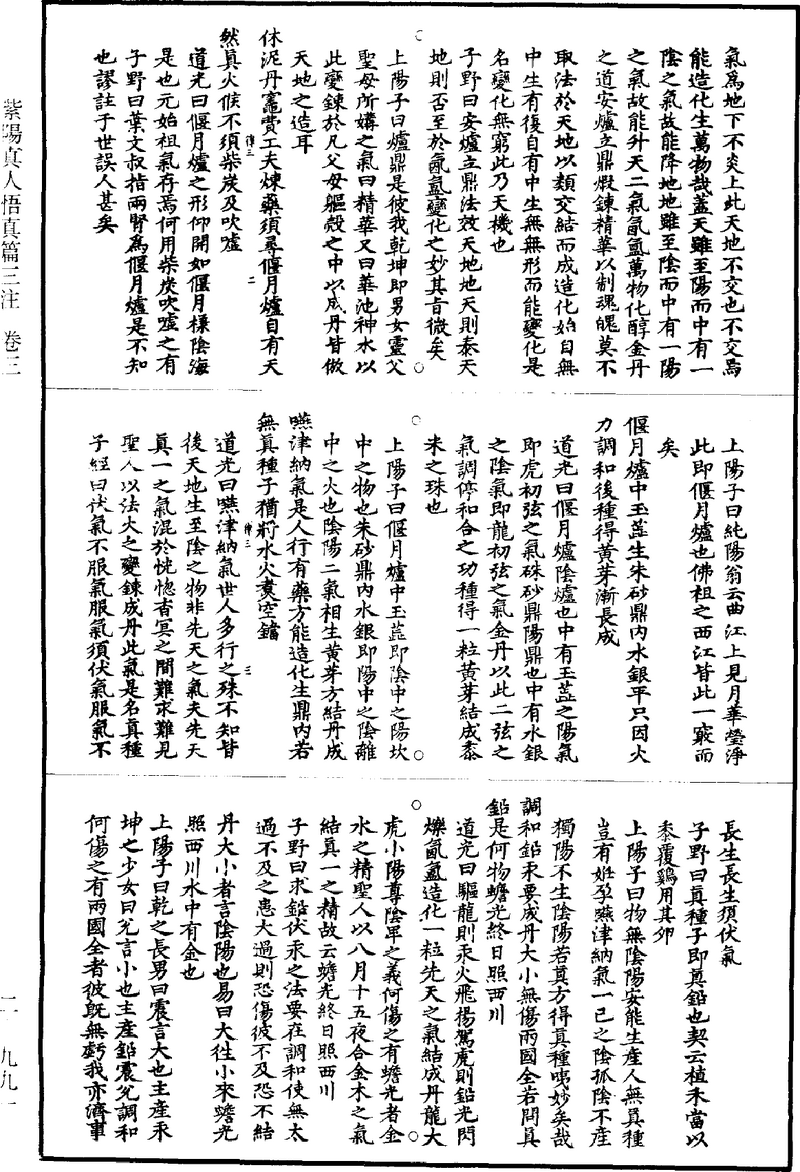 紫陽真人悟真篇三注　卷三
二　九九一
氣為地下不炎上此天地不交也不交焉
能造化生萬物哉蓋天雖至陽而中有一
陰之氣故能降地地雖至陰而中有一陽
之氣故能升天二氣氤氳萬物化醇金丹
之道安爐立鼎煆鍊精華以制魂魄莫不
取法於天地以類交結而成造化始自無
中生有復自有中生無無形而能變化是
名變化無窮此乃天機也
子野曰安爐立鼎法效天地地天則泰天
地則否至於氤氳變化之妙其旨微矣
上陽子曰爐鼎是彼我乾坤即男女靈父
聖母所媾之氣曰精華又曰華池神水以
此變鍊於凡父母軀殼之中以成丹皆倣
天地之造耳
休泥丹竈費工夫煉藥須尋偃月爐自有天
然真火候不須柴炭及吹噓
道光曰偃月爐之形仰開如偃月樣陰海
是也元始祖氣存焉何用柴炭吹噓之有
子野曰葉文叔指兩腎為偃月爐是不知
也謬註于世誤人甚矣
上陽子曰純陽翁云曲江上見月華瑩淨
此即偃月爐也佛祖之西江皆此一竅而
矣
偃月爐中玉蕊生朱砂鼎內水銀平只因火
力調和後種得黃芽漸長成
道光曰偃月爐陰爐也中有玉蕊之陽氣
即虎初弦之氣硃砂鼎陽鼎也中有水銀
之陰氣即龍初弦之氣金丹以此二弦之
氣調停和合之功種得一粒黃芽結成黍
米之珠也
上陽子曰偃月爐中玉蕊即陰中之陽坎
中之物也朱砂鼎內水銀即陽中之陰離
中之火也陰陽二氣相生黃芽方結丹成
嚥津納氣是人行有藥方能造化生鼎內若
無真種子猶將水火煑空鐺
道光曰嚥津納氣世人多行之殊不知皆
後天地生至陰之物非先天之氣夫先天
真一之氣混於恍惚杳冥之間難求難見
聖人以法火之變鍊成丹此氣是名真種
子經曰伏氣不服氣服氣須伏氣服氣不
長生長生須伏氣
子野曰真種子即真鉛也契云植禾當以
黍覆鷄用其卵
上陽子曰物無陰陽安能生產人無真種
豈有姙孕嚥津納氣一己之陰孤陰不產
獨陽不生陰陽若真方得真種咦妙矣哉
調和鉛汞要成丹大小無傷兩國全若問真
鉛是何物蟾光終日照西川
道光曰驅龍則汞火飛揚駕虎則鉛光閃
爍氤氳造化一粒先天之氣結成丹龍大
虎小陽尊陰卑之義何傷之有蟾光者金
水之精聖人以八月十五夜合金木之氣
結真一之精故云蟾光終日照西川
子野曰求鉛伏汞之法要在調和使無太
過不及之患大過則恐傷彼不及恐不結
丹大小者言陰陽也易曰大往小來蟾光
照西川水中有金也
上陽子曰乾之長男曰震言大也主產汞
坤之少女曰兌言小也主產鉛震兌調和
何傷之有兩國全者彼既無虧我亦濟事